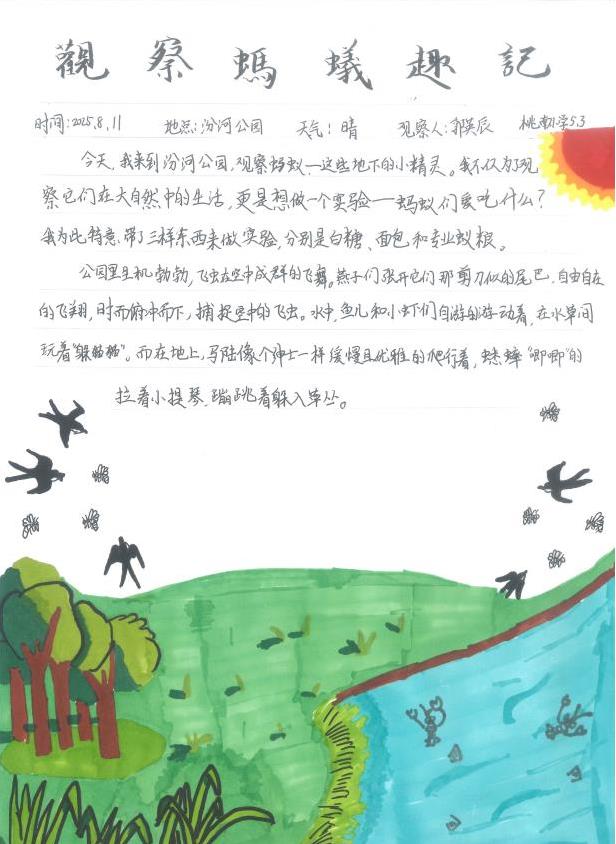 觀察螞蟻趣記
时间:2025.8.11 地点:汾河公园 天气:晴 观察人:郭英辰 桃南小学5.3
今天,我来到汾河公园,观察蚂蚁一这些地下的小精灵。我不仅为了观
察它们在大自然中的生活,更是想做一个实验——蚂蚁们爱吃什么?
我为此特意带了三样东西来做实验,分别是白糖、面包和专业蚁粮。
公园里生机勃勃,飞虫在空中成群的飞舞。燕子们张开它们那剪刀似的尾巴,自由自在
的飞翔,时而俯冲而下,捕捉空中的飞虫。水中,鱼儿和小虾们自游的游动着,在水草间
玩着"躲猫猫"。而在地上,马陆像个绅士一样缓慢且优雅的爬行着,蟋蟀"唧唧"的
拉着小提琴,蹦跳着躲入草丛。